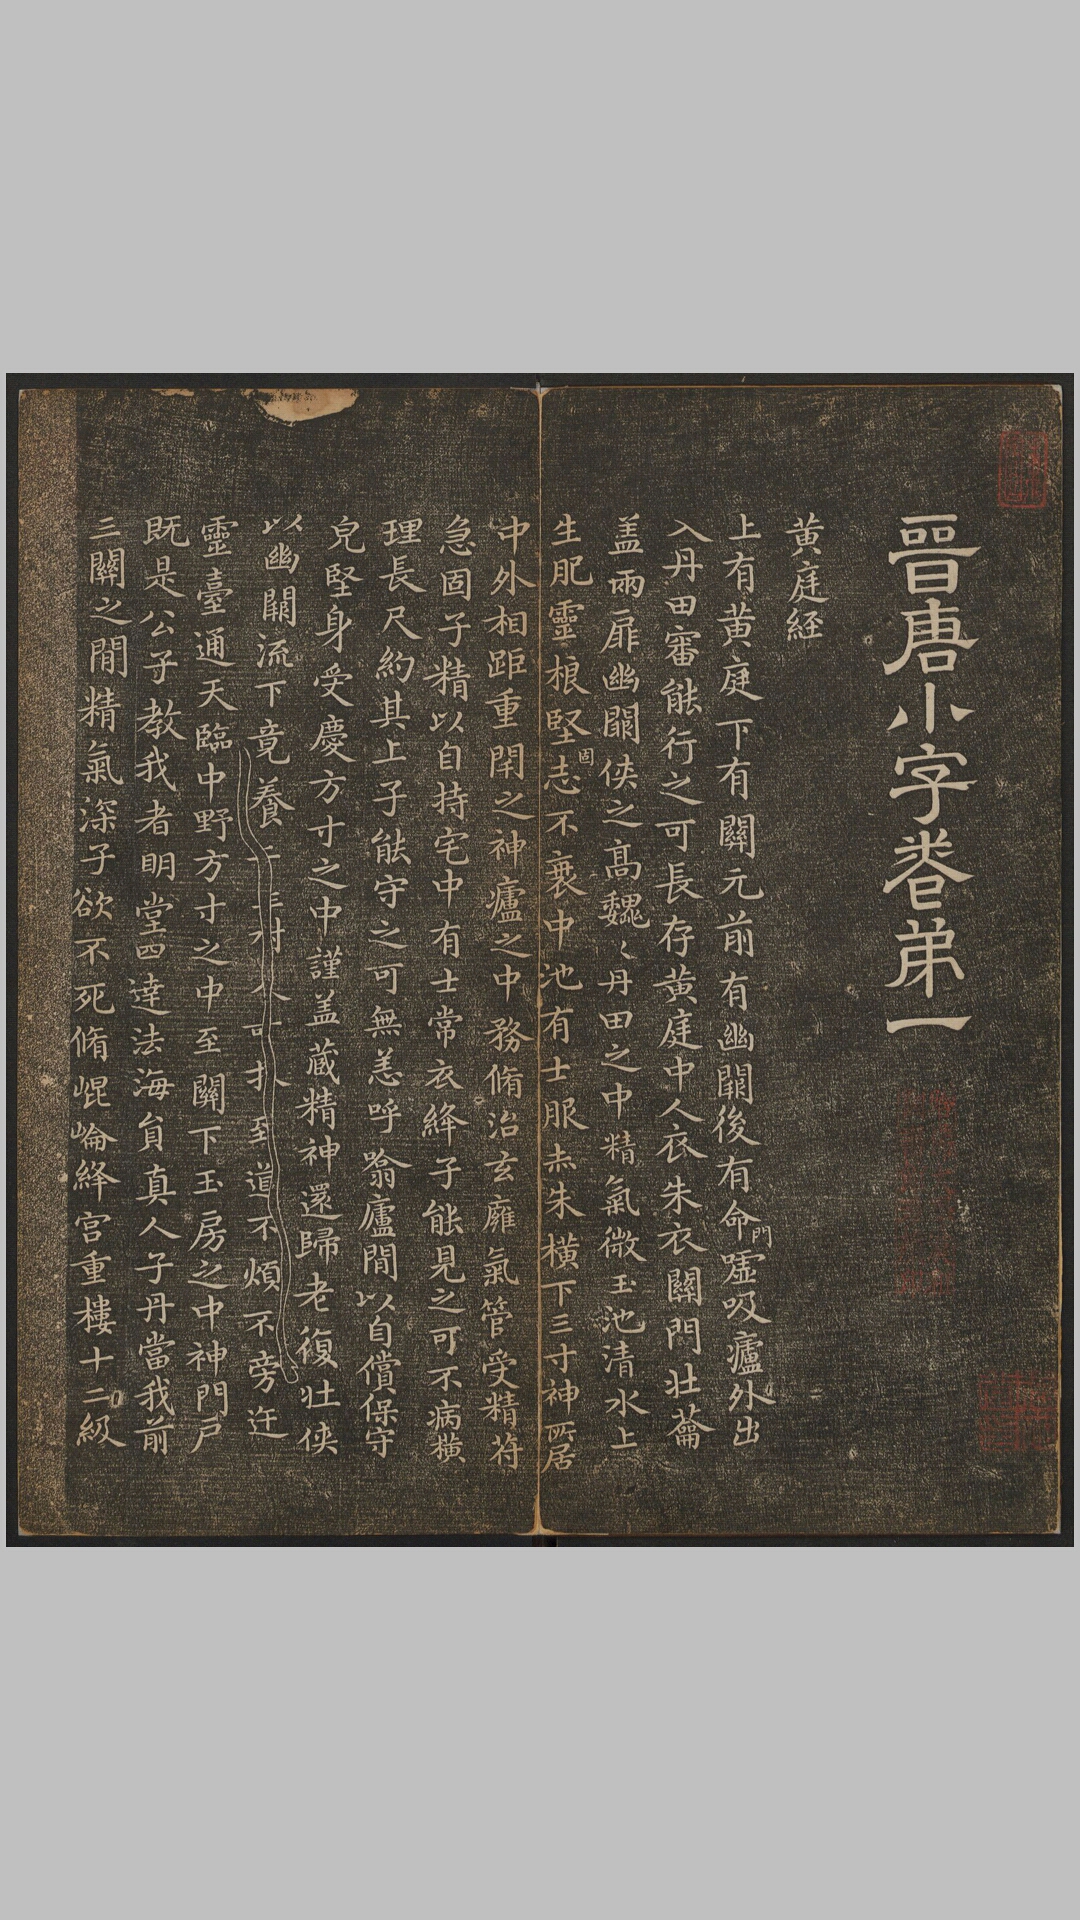 晉唐小字卷弟一
黃庭経
上有黃庭下有關元前有幽闕後有命門噓吸廬外出
入丹田審能行之可長存黃庭中人衣朱衣關門壯蘥
盖兩扉幽闕俠之高魏〻丹田之中精氣微玉池清水上
生肥靈根堅固志不衰中池有士服赤朱橫下三寸神所居
中外相距重閇之神廬之中務脩治玄廱氣管受精苻
急固子精以自持宅中有士常衣絳子能見之可不病橫
理長尺約其上子能守之可無恙呼噏廬間以自償保守
皃堅身受慶方寸之中謹盖藏精神還歸老復壯俠
以幽闕流下竟養子至道不煩不旁迕
靈臺通天臨中野方寸之中至關下玉房之中神門戶
既是公子教我者明堂四達法海員真人子丹當我前
三關之間精氣深子欲不死脩崐崘絳宮重樓十二級